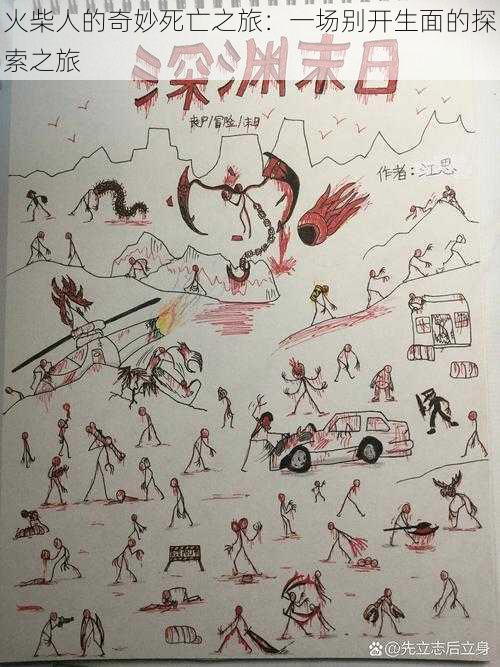 火柴人的奇妙死亡之旅：一场别开生面的探
索之旅
深渊末日
丧尸/冒险/末日
作者：江思
@先立志后立身